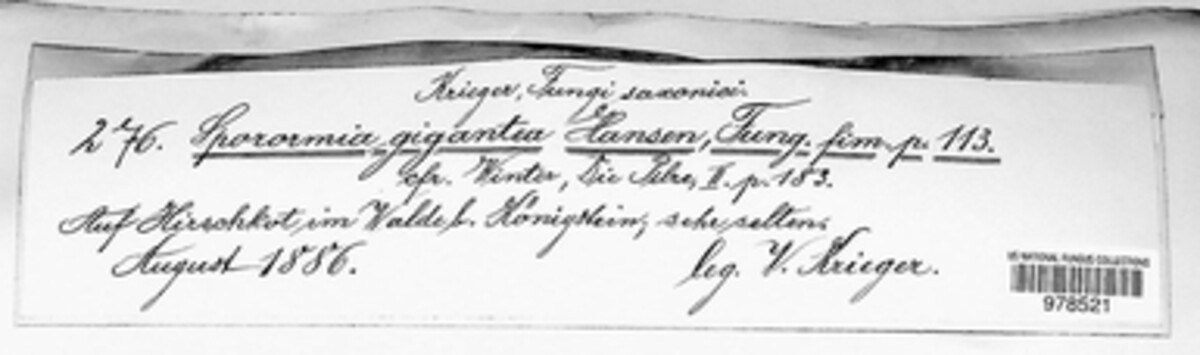 Krieger, Fungi saxonici.
276. Sporormia gigantea Hansen, Fung. fim. p. 113.
cfr. Winter, Die Pilze, II. p. 183.
Auf Hirschkot, im Walde b. Königstein, sehr selten.
August 1886. leg. W. Krieger.
US NATIONAL FUNGUS COLLECTIONS
978521